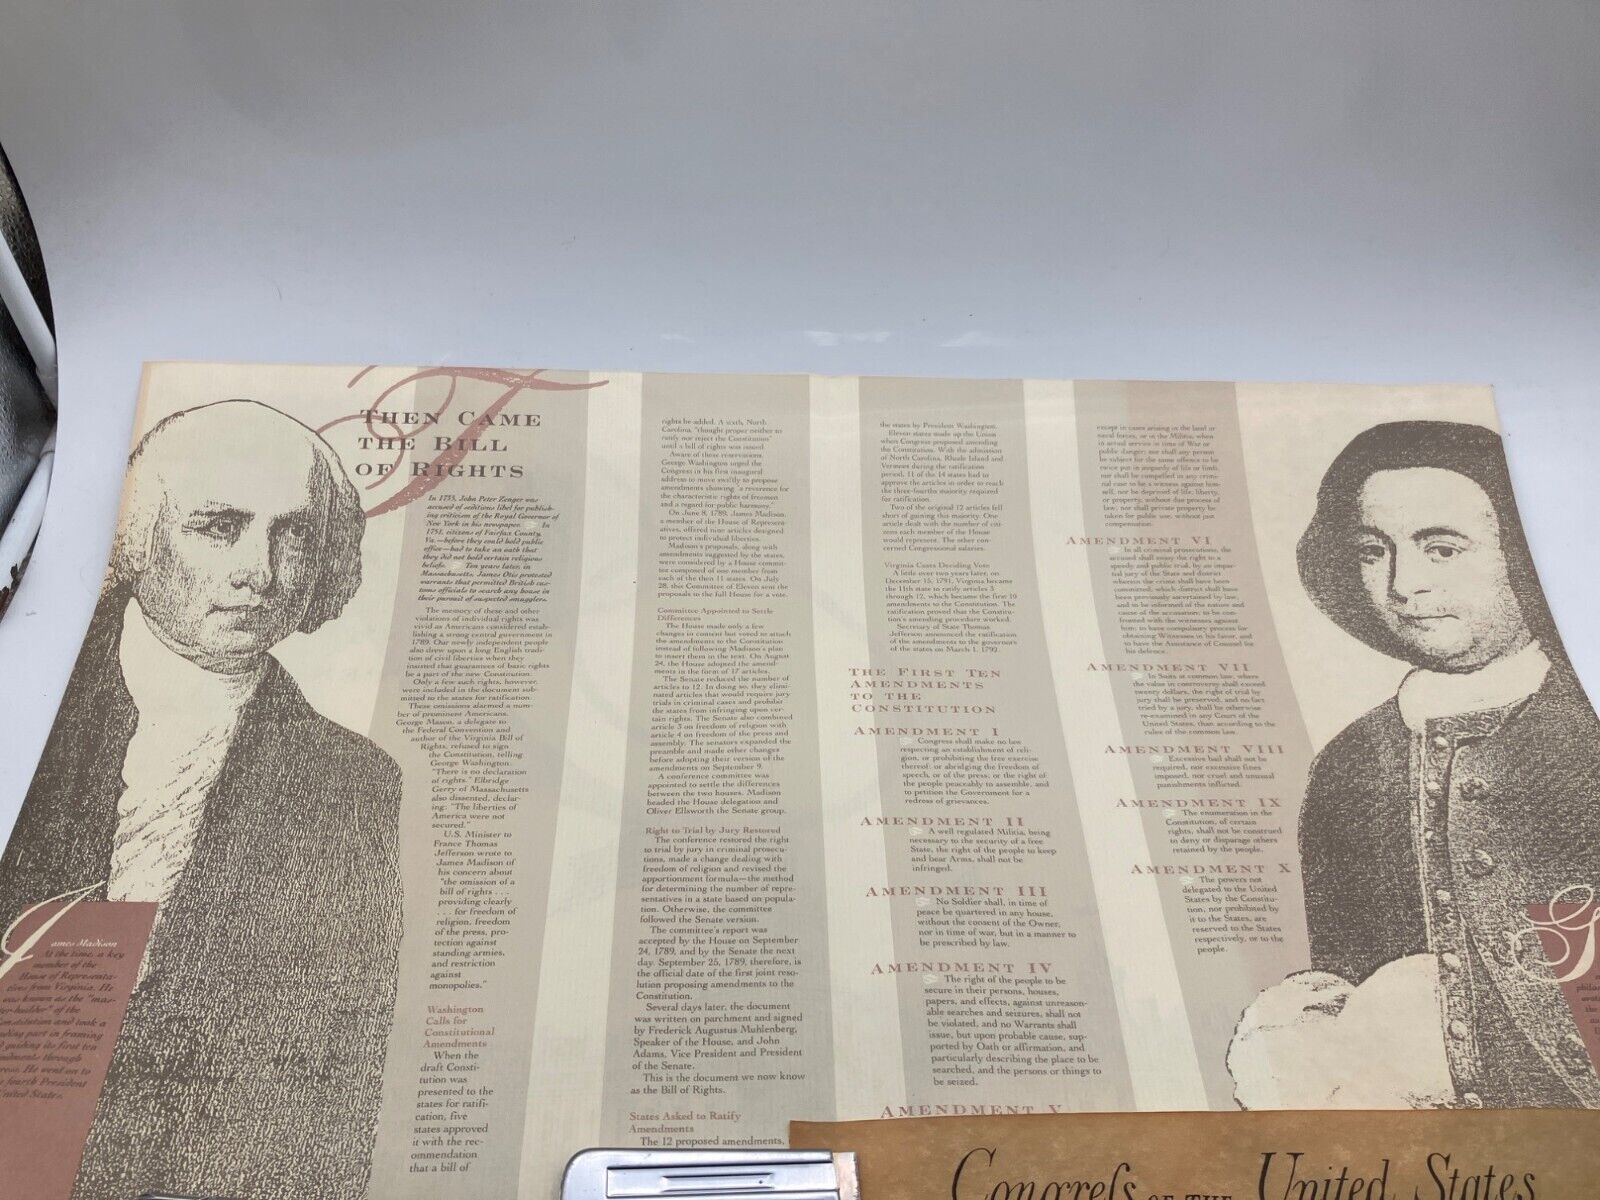 THEN CAME
THE BILL
OF RIGHTS
In 1735, John Peter Zenger was
accused of seditious libel for publish-
ing criticism of the Royal Governor of
New York in his newspaper. In
1751, citizens of Fairfax County,
Va.—before they could hold public
office—had to take an oath that
they did not hold certain religious
beliefs. Ten years later, in
Massachusetts, James Otis protested
warrants that permitted British cus-
toms officials to search any house in
their pursuit of suspected smugglers.
The memory of these and other
violations of individual rights was
vivid as Americans considered estab-
lishing a strong central government in
1789. Our newly independent people
also drew upon a long English tradi-
tion of civil liberties when they
insisted that guarantees of basic rights
be a part of the new Constitution.
Only a few such rights, however,
were included in the document sub-
mitted to the states for ratification.
These omissions alarmed a num-
ber of prominent Americans.
George Mason, a delegate to
the Federal Convention and
author of the Virginia Bill of
Rights, refused to sign
the Constitution, telling
George Washington,
"There is no declaration
of rights." Elbridge
Gerry of Massachusetts
also dissented, declar-
ing: "The liberties of
America were not
secured."
U.S. Minister to
France Thomas
Jefferson wrote to
James Madison of
his concern about
"the omission of a
bill of rights . . .
providing clearly
. . . for freedom of
religion, freedom
of the press, pro-
tection against
standing armies,
and restriction
against
monopolies."
Washington
Calls for
Constitutional
Amendments
When the
draft Consti-
tution was
presented to the
states for ratifi-
cation, five
states approved
it with the rec-
ommendation
that a bill of
rights be added. A sixth, North
Carolina, "thought proper neither to
ratify nor reject the Constitution"
until a bill of rights was issued.
Aware of these reservations,
George Washington urged the
Congress in his first inaugural
address to move swiftly to propose
amendments showing "a reverence for
the characteristic rights of freemen
and a regard for public harmony."
On June 8, 1789, James Madison,
a member of the House of Represent-
atives, offered nine articles designed
to protect individual liberties.
Madison's proposals, along with
amendments suggested by the states,
were considered by a House commit-
tee composed of one member from
each of the then 11 states. On July
28, this Committee of Eleven sent the
proposals to the full House for a vote.
Committee Appointed to Settle
Differences
The House made only a few
changes in content but voted to attach
the amendments to the Constitution
instead of following Madison's plan
to insert them in the text. On August
24, the House adopted the amend-
ments in the form of 17 articles.
The Senate reduced the number of
articles to 12. In doing so, they elimi-
nated articles that would require jury
trials in criminal cases and prohibit
the states from infringing upon cer-
tain rights. The Senate also combined
article 3 on freedom of religion with
article 4 on freedom of the press and
assembly. The senators expanded the
preamble and made other changes
before adopting their version of the
amendments on September 9.
A conference committee was
appointed to settle the differences
between the two houses. Madison
headed the House delegation and
Oliver Ellsworth the Senate group.
Right to Trial by Jury Restored
The conference restored the right
to trial by jury in criminal prosecu-
tions, made a change dealing with
freedom of religion and revised the
apportionment formula—the method
for determining the number of repre-
sentatives in a state based on popula-
tion. Otherwise, the committee
followed the Senate version.
The committee's report was
accepted by the House on September
24, 1789, and by the Senate the next
day. September 25, 1789, therefore, is
the official date of the first joint reso-
lution proposing amendments to the
Constitution.
Several days later, the document
was written on parchment and signed
by Frederick Augustus Muhlenberg,
Speaker of the House, and John
Adams, Vice President and President
of the Senate.
This is the document we now know
as the Bill of Rights.
States Asked to Ratify
Amendments
The 12 proposed amendments,
the states by President Washington.
Eleven states made up the Union
when Congress proposed amending
the Constitution. With the admission
of North Carolina, Rhode Island and
Vermont during the ratification
period, 11 of the 14 states had to
approve the articles in order to reach
the three-fourths majority required
for ratification.
Two of the original 12 articles fell
short of gaining this majority. One
article dealt with the number of citi-
zens each member of the House
would represent. The other con-
cerned Congressional salaries.
Virginia Casts Deciding Vote
A little over two years later, on
December 15, 1791, Virginia became
the 11th state to ratify articles 3
through 12, which became the first 10
amendments to the Constitution. The
ratification proved that the Constitu-
tion's amending procedure worked.
Secretary of State Thomas
Jefferson announced the ratification
of the amendments to the governors
of the states on March 1, 1792.
THE FIRST TEN
AMENDMENTS
TO THE
CONSTITUTION
AMENDMENT I
Congress shall make no law
respecting an establishment of reli-
gion, or prohibiting the free exercise
thereof; or abridging the freedom of
speech, or of the press; or the right of
the people peaceably to assemble, and
to petition the Government for a
redress of grievances.
AMENDMENT II
A well regulated Militia, being
necessary to the security of a free
State, the right of the people to keep
and bear Arms, shall not be
infringed.
AMENDMENT III
No Soldier shall, in time of
peace be quartered in any house,
without the consent of the Owner,
nor in time of war, but in a manner to
be prescribed by law.
AMENDMENT IV
The right of the people to be
secure in their persons, houses,
papers, and effects, against unreason-
able searches and seizures, shall not
be violated, and no Warrants shall
issue, but upon probable cause, sup-
ported by Oath or affirmation, and
particularly describing the place to be
searched, and the persons or things to
be seized.
AMENDMENT V
except in cases arising in the land or
naval forces, or in the Militia, when
in actual service in time of War or
public danger; nor shall any person
be subject for the same offence to be
twice put in jeopardy of life or limb,
nor shall be compelled in any crimi-
nal case to be a witness against him-
self, nor be deprived of life, liberty,
or property, without due process of
law; nor shall private property be
taken for public use, without just
compensation.
AMENDMENT VI
In all criminal prosecutions, the
accused shall enjoy the right to a
speedy and public trial, by an impar-
tial jury of the State and district
wherein the crime shall have been
committed, which district shall have
been previously ascertained by law,
and to be informed of the nature and
cause of the accusation; to be con-
fronted with the witnesses against
him; to have compulsory process for
obtaining Witnesses in his favor, and
to have the Assistance of Counsel for
his defence.
AMENDMENT VII
In Suits at common law, where
the value in controversy shall exceed
twenty dollars, the right of trial by
jury shall be preserved, and no fact
tried by a jury, shall be otherwise
re-examined in any Court of the
United States, than according to the
rules of the common law.
AMENDMENT VIII
Excessive bail shall not be
required, nor excessive fines
imposed, nor cruel and unusual
punishments inflicted.
AMENDMENT IX
The enumeration in the
Constitution, of certain
rights, shall not be construed
to deny or disparage others
retained by the people.
AMENDMENT X
The powers not
delegated to the United
States by the Constitu-
tion, nor prohibited by
it to the States, are
reserved to the States
respectively, or to the
people.
James Madison
At the time, a key
member of the
House of Representa-
tives from Virginia. He
was known as the "mas-
ter-builder" of the
Constitution and took a
leading part in framing
guiding its first ten
amendments through
He went on to
fourth President
United States.
Congress OF THE United States